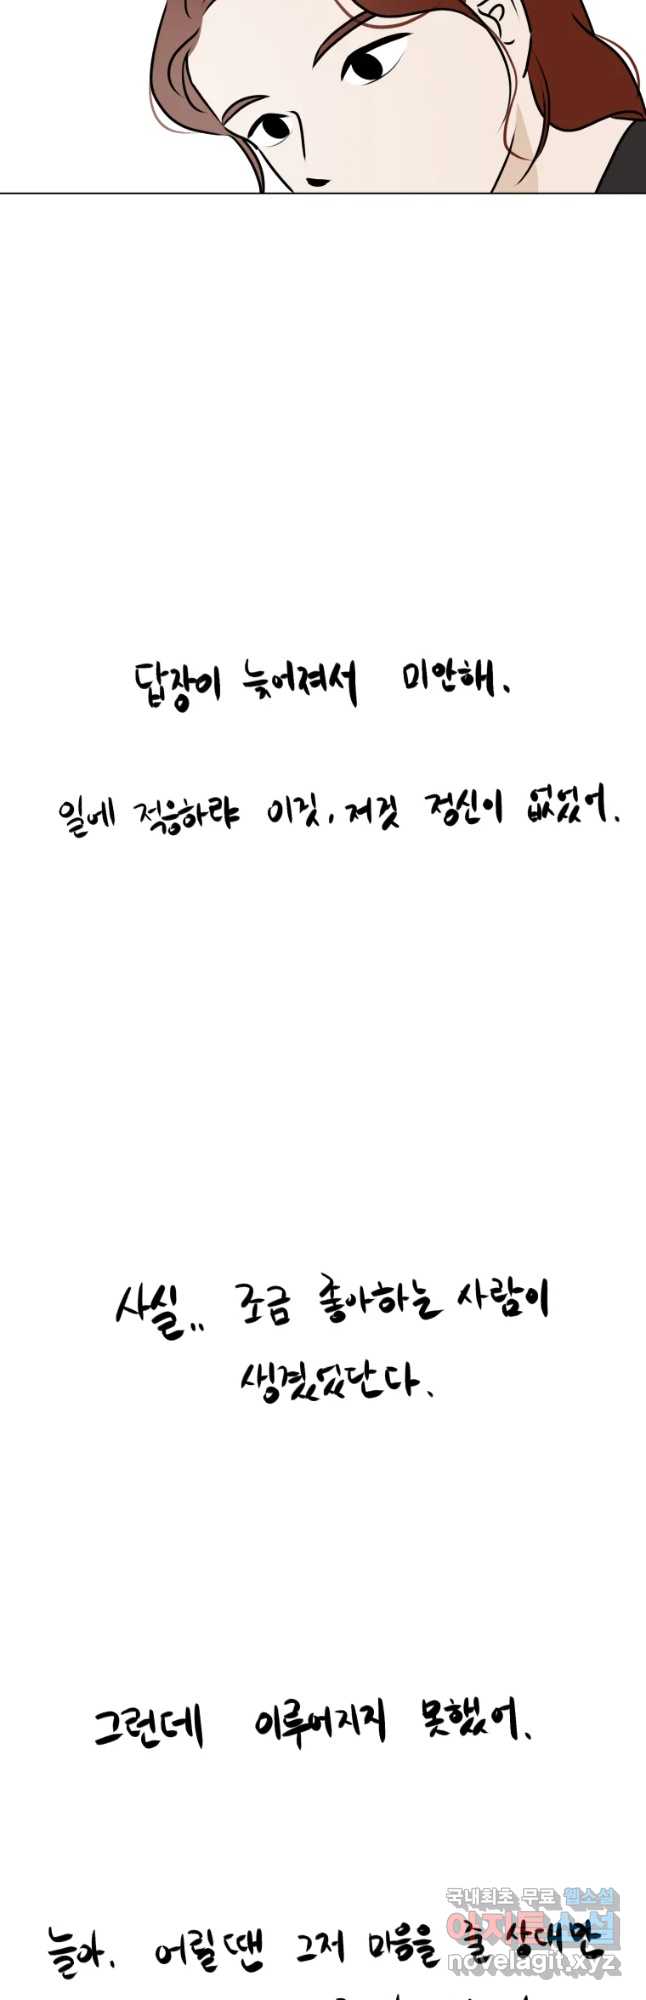 답장이 늦어져서 미안해.
일에 적응하랴 이것, 저것 정신이 없었어.
사실.. 조금 좋아하는 사람이
생겼었단다.
그런데 이루어지지 못했어.
국내최초 무료 웹소설
아지툰소설
novelagit.xyz
늘아. 어릴땐 그저 마음을 줄 상대만